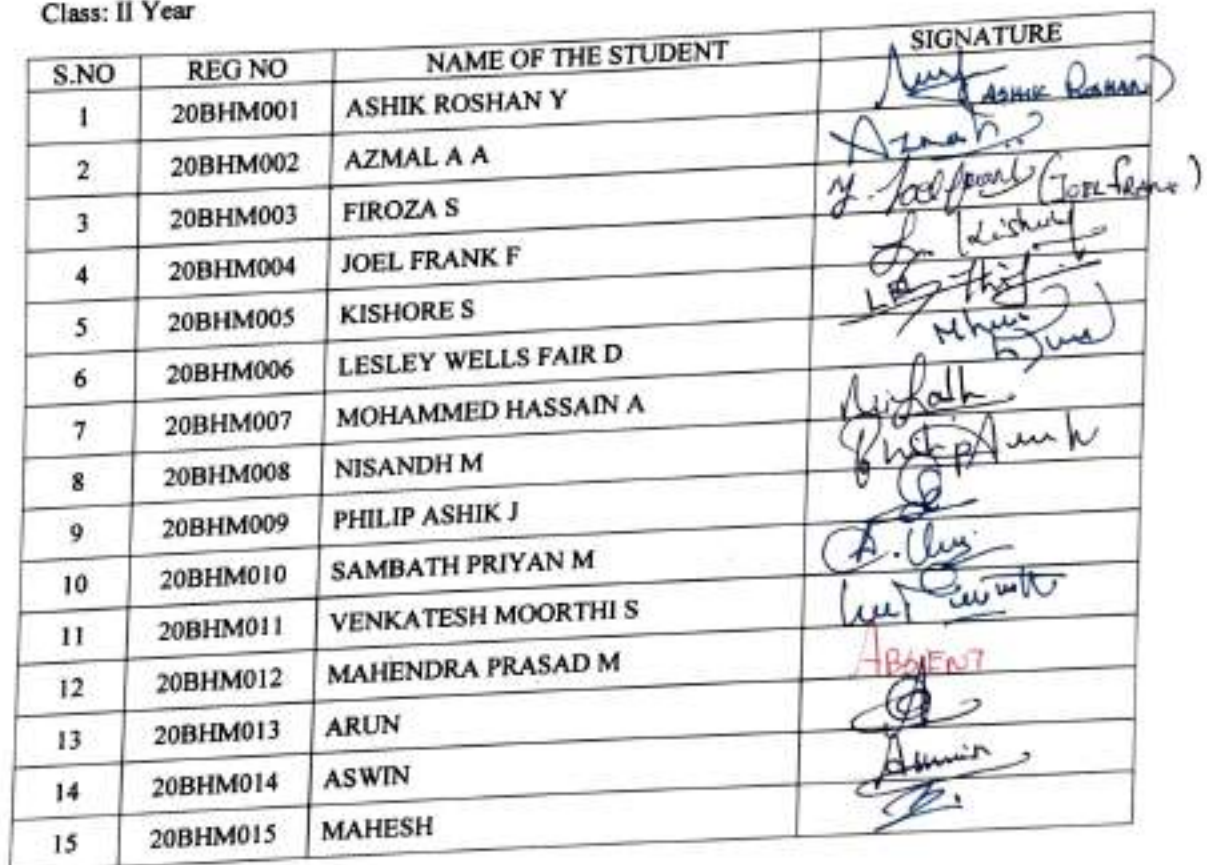 Class: II Year
S.NO REG NO NAME OF THE STUDENT SIGNATURE
1 20BHM001 ASHIK ROSHAN Y (ASHIK ROSHAN)
2 20BHM002 AZMAL A A Azmal
3 20BHM003 FIROZA S Y. Joel frank (JOEL FRANK)
4 20BHM004 JOEL FRANK F
5 20BHM005 KISHORE S
6 20BHM006 LESLEY WELLS FAIR D
7 20BHM007 MOHAMMED HASSAIN A
8 20BHM008 NISANDH M
9 20BHM009 PHILIP ASHIK J
10 20BHM010 SAMBATH PRIYAN M
11 20BHM011 VENKATESH MOORTHI S
12 20BHM012 MAHENDRA PRASAD M ABSENT
13 20BHM013 ARUN
14 20BHM014 ASWIN
15 20BHM015 MAHESH